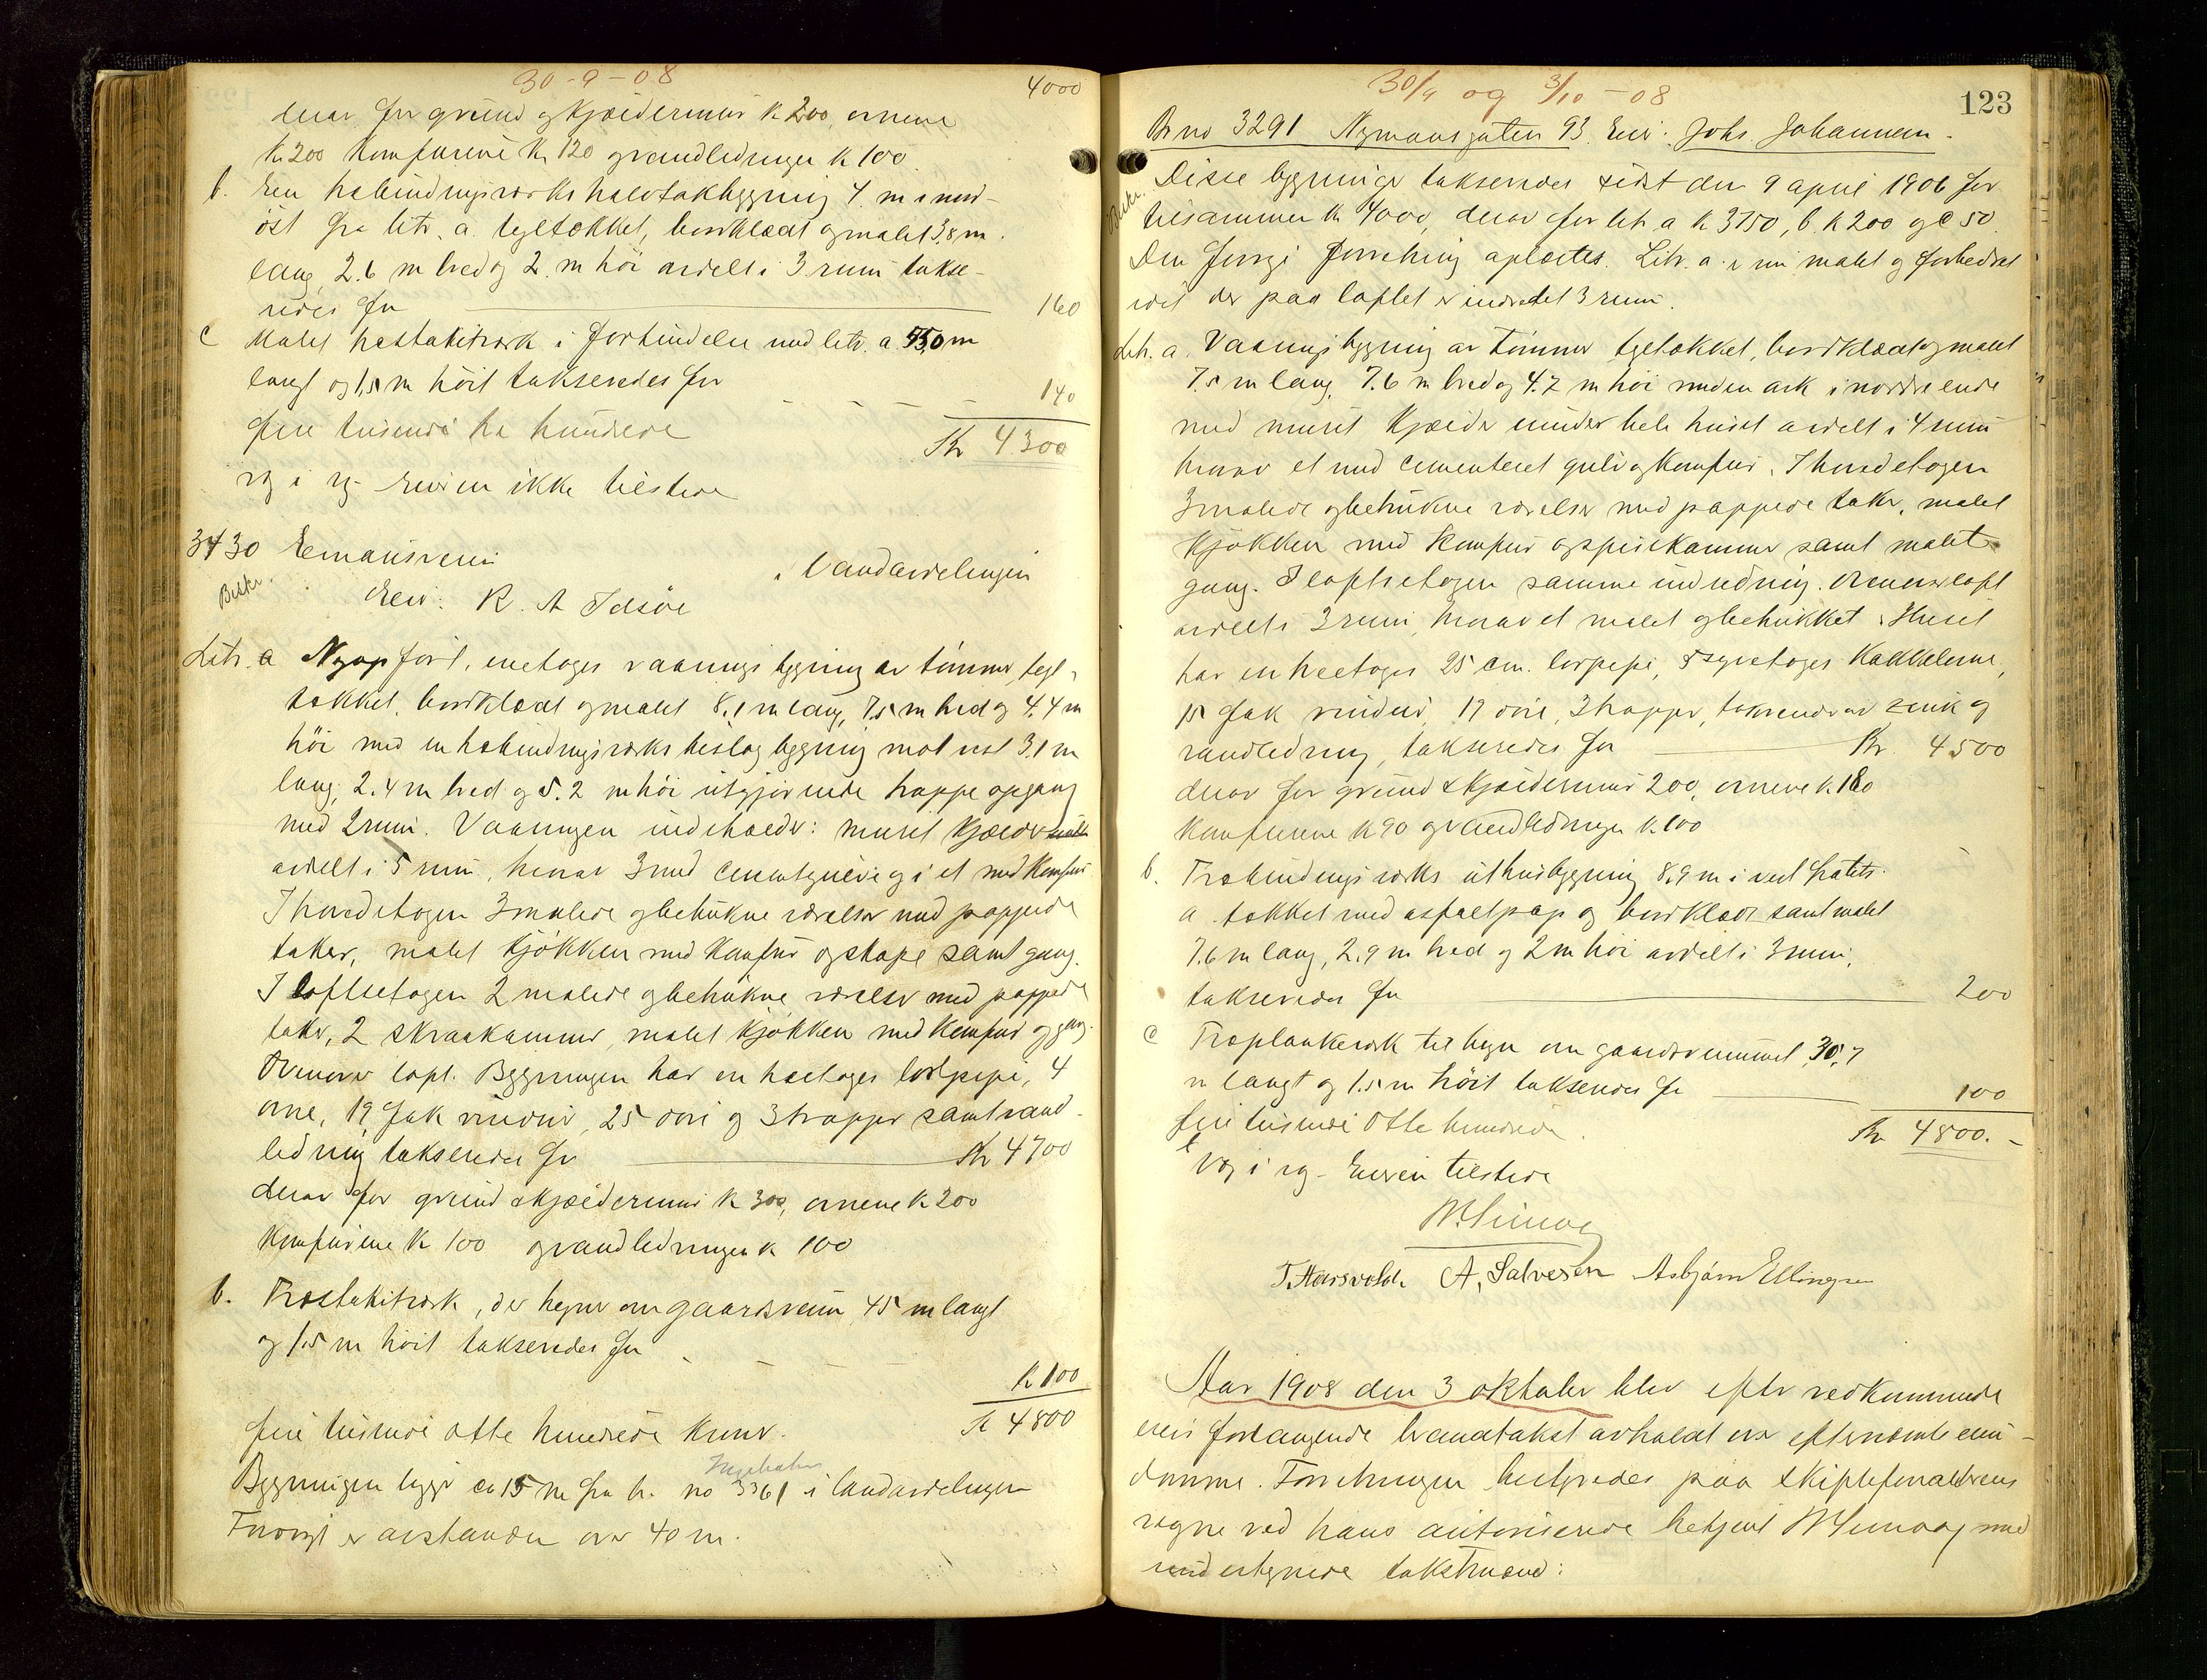 30-9-08
4000
derav for grund og kjældermur k 200, ovnene
k 200 komfurene k 120 og vandledningen k 100
b. En trebindingsværks halvtakbygning 4. m i nord-
öst fra litr. a. tegltækket, bordklædt og malet 3,8 m.
lang, 2.6 m bred og 2. m höi avdelt i 3 rum takse-
redes for 160
c Malet træstakitværk i forbindelse med litr. a 45,0 m
langt og 1,5 m höit takseredes for 140
fire tusende tre hundrede Kr 4300
og i rg. Eieren ikke tilstede
3430 Emausveien i Landavdelingen
Beskr.
Eier: K. A. Idsöe
Litr. a Nyopfört, enetages vaanings bygning av tömmer, tegl-
tækket, bordklædt og malet 8,1 m lang, 7,5 m bred og 4.4 m
höi med en trebindingsværks beslag bygning mot vest 3.1 m
lang, 2.4 m bred og 5.2 m höi utgjörende trappe opgang
med 2 rum. Vaaningen indeholder: muret kjælder
avdelt i 5 rum, hvorav 3 med cementgulve og i et med komfur
I hovedetagen 3 malede og betrukne værelser med pappede
taker, malet kjökken med komfur og skape samt gang.
I loftsetagen 2 malede og betrukne værelser med pappede
taker, 2 skraakammer, malet kjökken med komfur og gang.
Ovenover loft. Bygningen har en treetages lodpipe, 4
ovne, 19 fak vinduer, 25 döre og 3 trapper samt vand-
ledning takseredes for Kr 4700
derav for grund & kjældermur k 300, ovnene k 200
komfurene k 100 og vandledningen k 100
b. Træstakitværk, der hegner om gaardsrum, 45 m langt
og 1.5 m höit takseredes for
k 100
fire tusende otte hundrede kroner. K 4800
Bygningen ligger ca 15 m fra br. no 3361 i landavdelingen
Forövrigt er avstanden over 40 m.
30/9 og 3/10 - 08
123
Br no 3291 Nymansgaten 93. Eier: Johs. Johannesen.
Beskr.
Disse bygninger takseredes sidst den 9 april 1906 for
tilsammen k 4000, derav for litr. a k 3750, b. k 200 og c 50.
Den forrige forretning aplæstes. Litr. a. er nu malet og forbedret
idet der paa loftet er indredet 3 rum.
Litr. a. Vaaningsbygning av tömmer tegltækket, bordklædt og malet
7.5 m lang, 7.6 m bred og 4.7 m höi med en ark i nordre ende
med muret kjælder under hele huset avdelt i 4 rum
hvorav et med cementeret gulv og komfur. I hovedetagen
3 malede og betrukne værelser med pappede taker, malet
kjökken med komfur og spisekammer samt malet
gang. I loftsetagen samme indredning. Ovenover loft
avdelt i 3 rum, hvorav et malet og betrukket. Huset
har en treetages 25 cm. lodpipe, 5 syvetages kakkelovne,
15 fak vinduer, 17 döre, 3 trapper, takrender av zink og
vandledning, takseredes for Kr. 4500
derav for grund & kjældermur 200, ovnene k. 180
komfurene k 90 og vandledningen k. 100
b. Trebindingsværks uthusbygning 8.9 m i vest fra litr.
a. tækket med asfaltpap og bordklædt samt malet
7.6 m lang, 2.9 m bred og 2 m höi avdelt i 3 rum,
takseredes for 200
c Træplankeværk til hegn om gaardsrummet, 30,7
m langt og 1.5 m höit takseredes for 100
fire tusende otte hundrede. Kr 4800.-
og i rg - Eieren tilstede
T. Haarsvold. A. Salvesen Asbjörn Ellingsen
Aar 1908 den 3 oktober blev efter vedkommende
eiers forlangende brandtakst avholdt over efternævnte eien-
domme. Forretningen bestyredes paa skifteforvalterens
vegne ved hans autoriserede betjent med
undertegnede takstmænd: